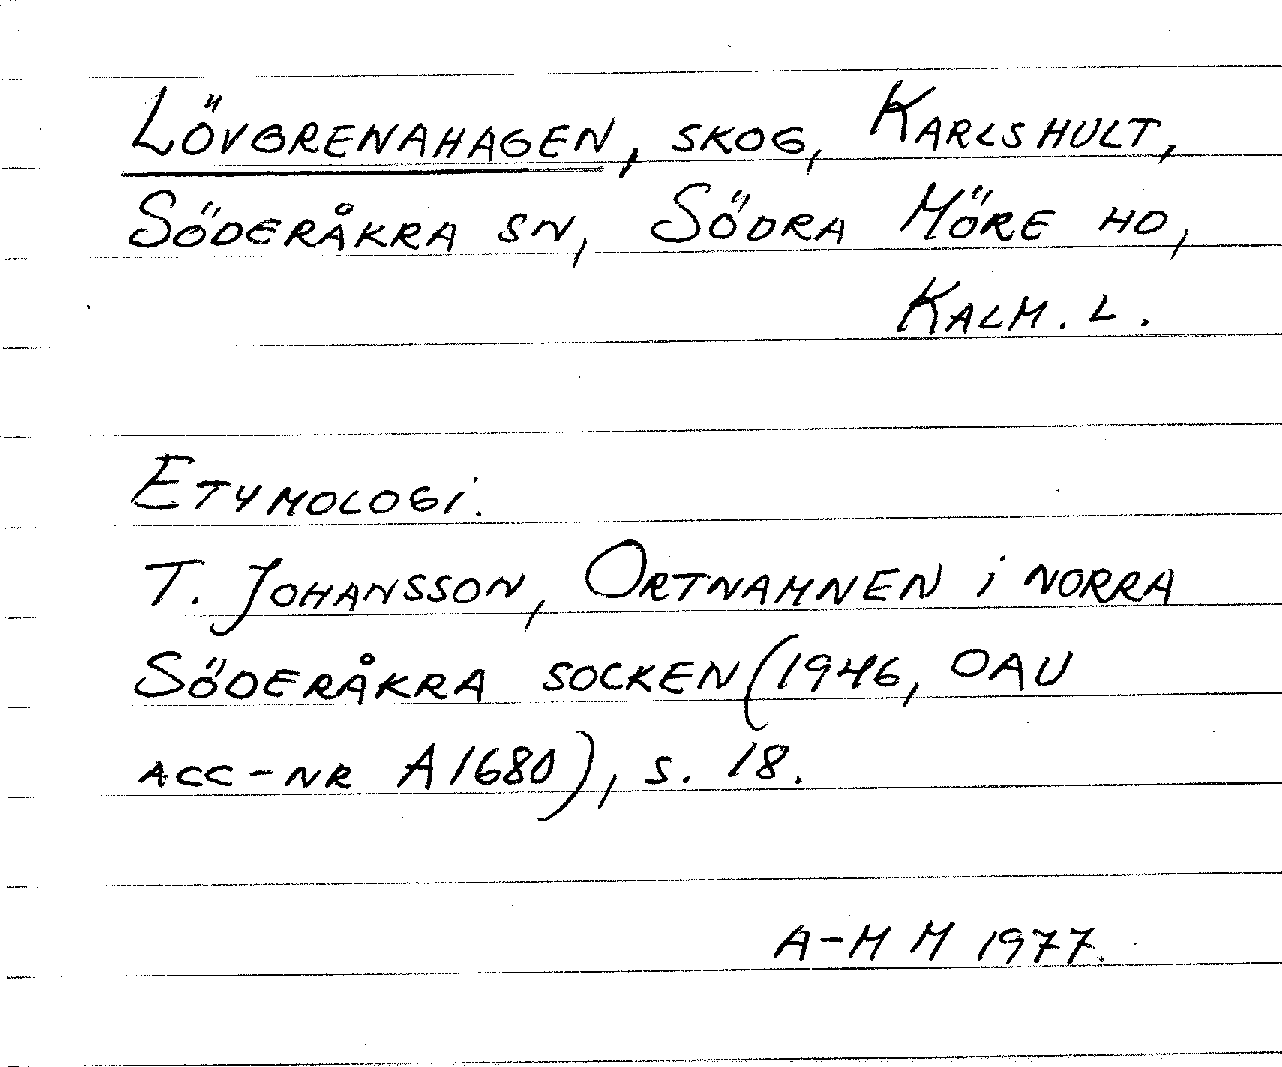 LÖVGRENAHAGEN, SKOG, KARLSHULT,
SÖDERÅKRA SN, SÖDRA MÖRE HD,
KALM. L.
ETYMOLOGI.
T. JOHANSSON, ORTNAMNEN i NORRA
SÖDERÅKRA SOCKEN (1946, OAU
ACC-NR A1680), S. 18.
A-M M 1977.